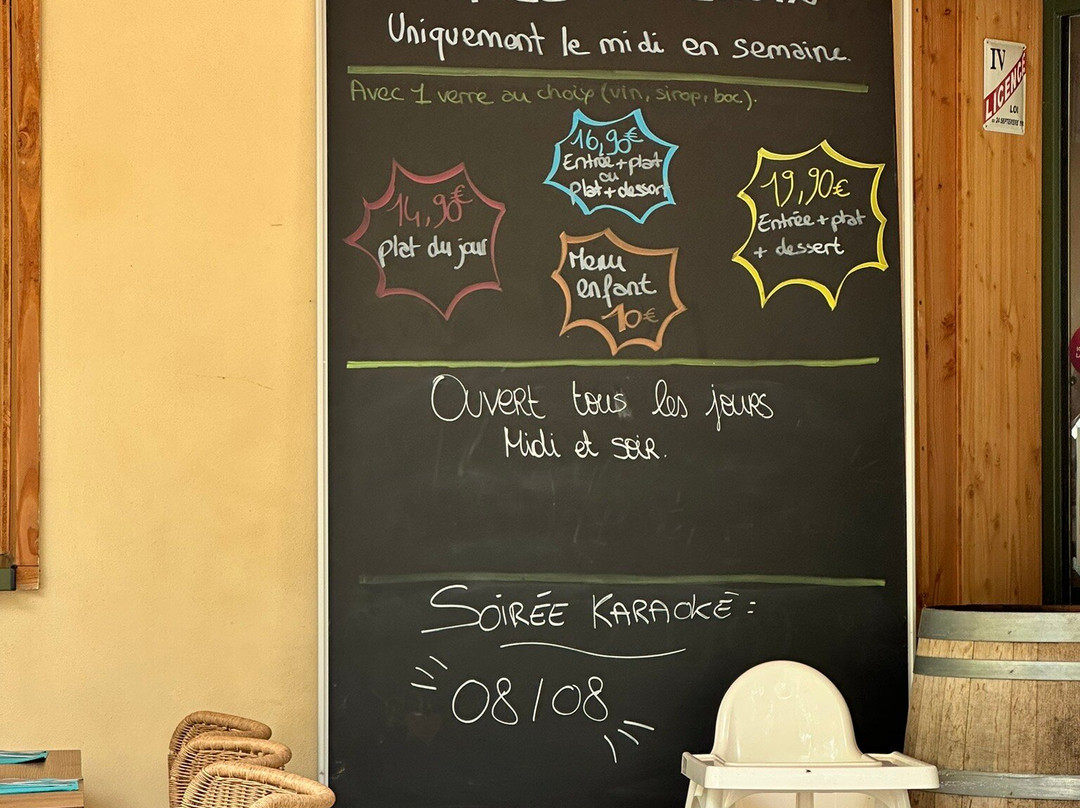 Uniquement le midi en semaine.
Avec 1 verre au choix (vin, sirop, boc).
14,90€
plat du jour
16,90€
Entrée + plat
ou
Plat + dessert
19,90€
Entrée + plat
+ dessert
Menu
enfant
10€
OUVERT tous les jours
Midi et soir.
SOIRÉE KARAOKÉ :
08/08
IV
LICENCE
LOI